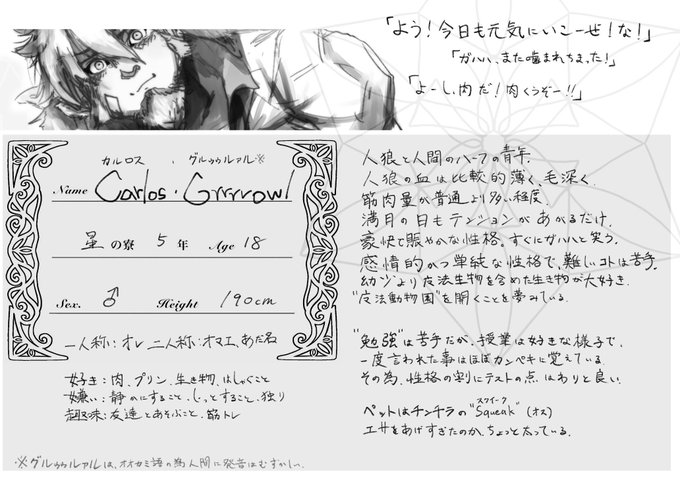 「よう！今日も元気にいこーぜ！な！」
「ガハハ、また噛まれちまった！」
「よーし、肉だ！肉くうぞー!!」
カルロス・グルゥゥルァル※
Name Carlos・Grrrrowl
星の寮 5年 Age 18
Sex. ♂ Height 190cm
一人称：オレ 二人称：オマエ、あだ名
好き：肉、プリン、生き物、はしゃぐこと
嫌い：静かにすること、じっとすること、独り
趣味：友達とあそぶこと、筋トレ
※グルゥゥルァルは、オオカミ語の為人間に発音はむずかしい。
人狼と人間のハーフの青年。
人狼の血は比較的薄く、毛深く、
筋肉量が普通より多い程度。
満月の日もテンションがあがるだけ。
豪快で賑やかな性格。すぐにガハハと笑う。
感情的かつ単純な性格で、難しいコトは苦手。
幼い頃より魔法生物を含めた生き物が大好き。
"魔法動物園"を開くことを夢みている。
"勉強"は苦手だが、授業は好きな様子で、
一度言われた事はほぼカンペキに覚えている。
その為、性格の割にテストの点はわりと良い。
スクイーク
ペットはチンチラの"Squeak"（オス）
エサをあげすぎたのか、ちょっと太っている。